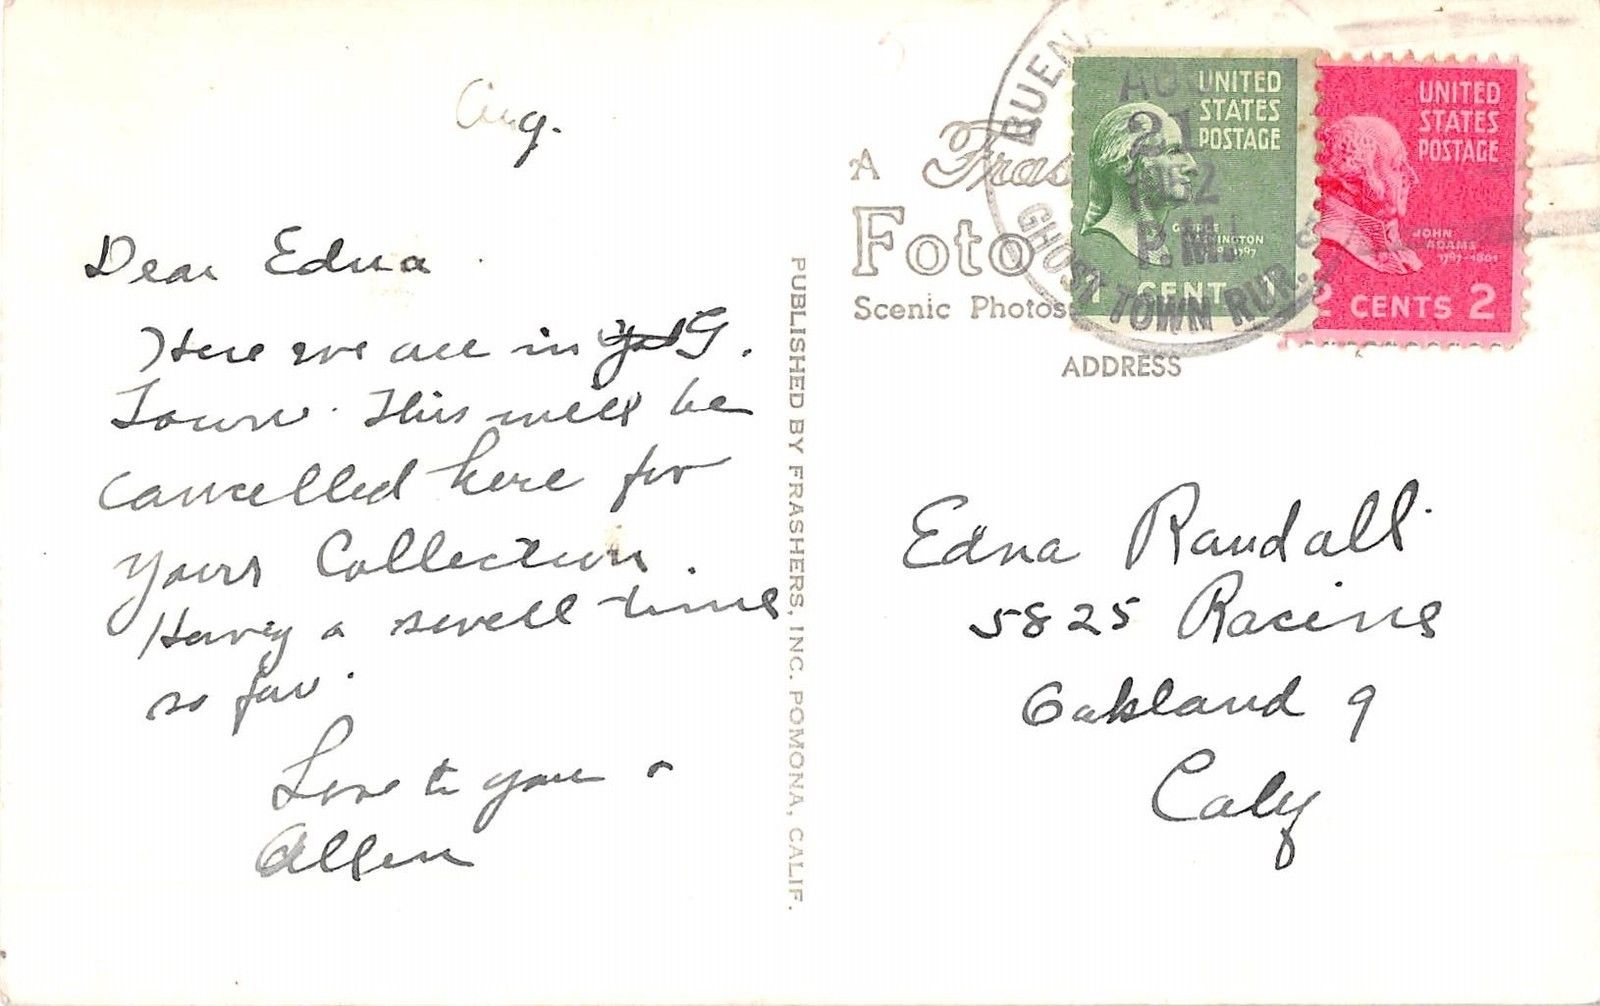 Aug.
Dear Edna
Here we are in G.
Town. This will be
Cancelled here for
your Collection.
Having a swell time
so far.
Love to you &
Allen
PUBLISHED BY FRASHERS, INC. POMONA, CALIF.
A Fras
Foto
Scenic Photos
ADDRESS
BUENA
AUG
21
1952
P.M.
GHOST TOWN RUR.
UNITED
STATES
POSTAGE
GEORGE
WASHINGTON
1789-1797
1 CENT 1
UNITED
STATES
POSTAGE
JOHN
ADAMS
1797-1801
2 CENTS 2
Edna Randall
5825 Racine
Oakland 9
Calif